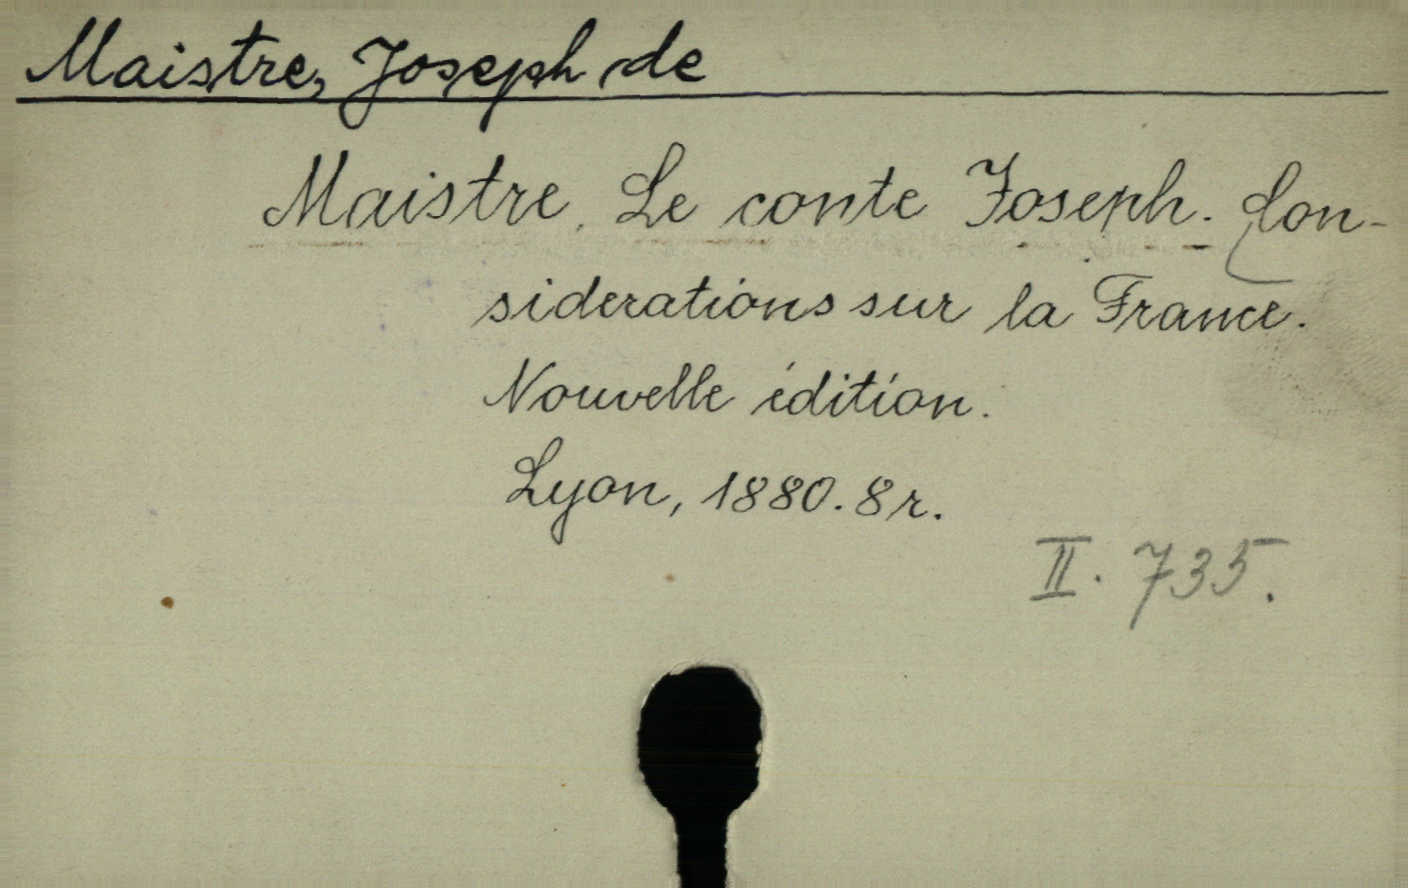 Maistre, Joseph de
Maistre. Le conte Joseph. Con-
siderations sur la France.
Nouvelle édition.
Lyon, 1880. 8r.
II. 735.